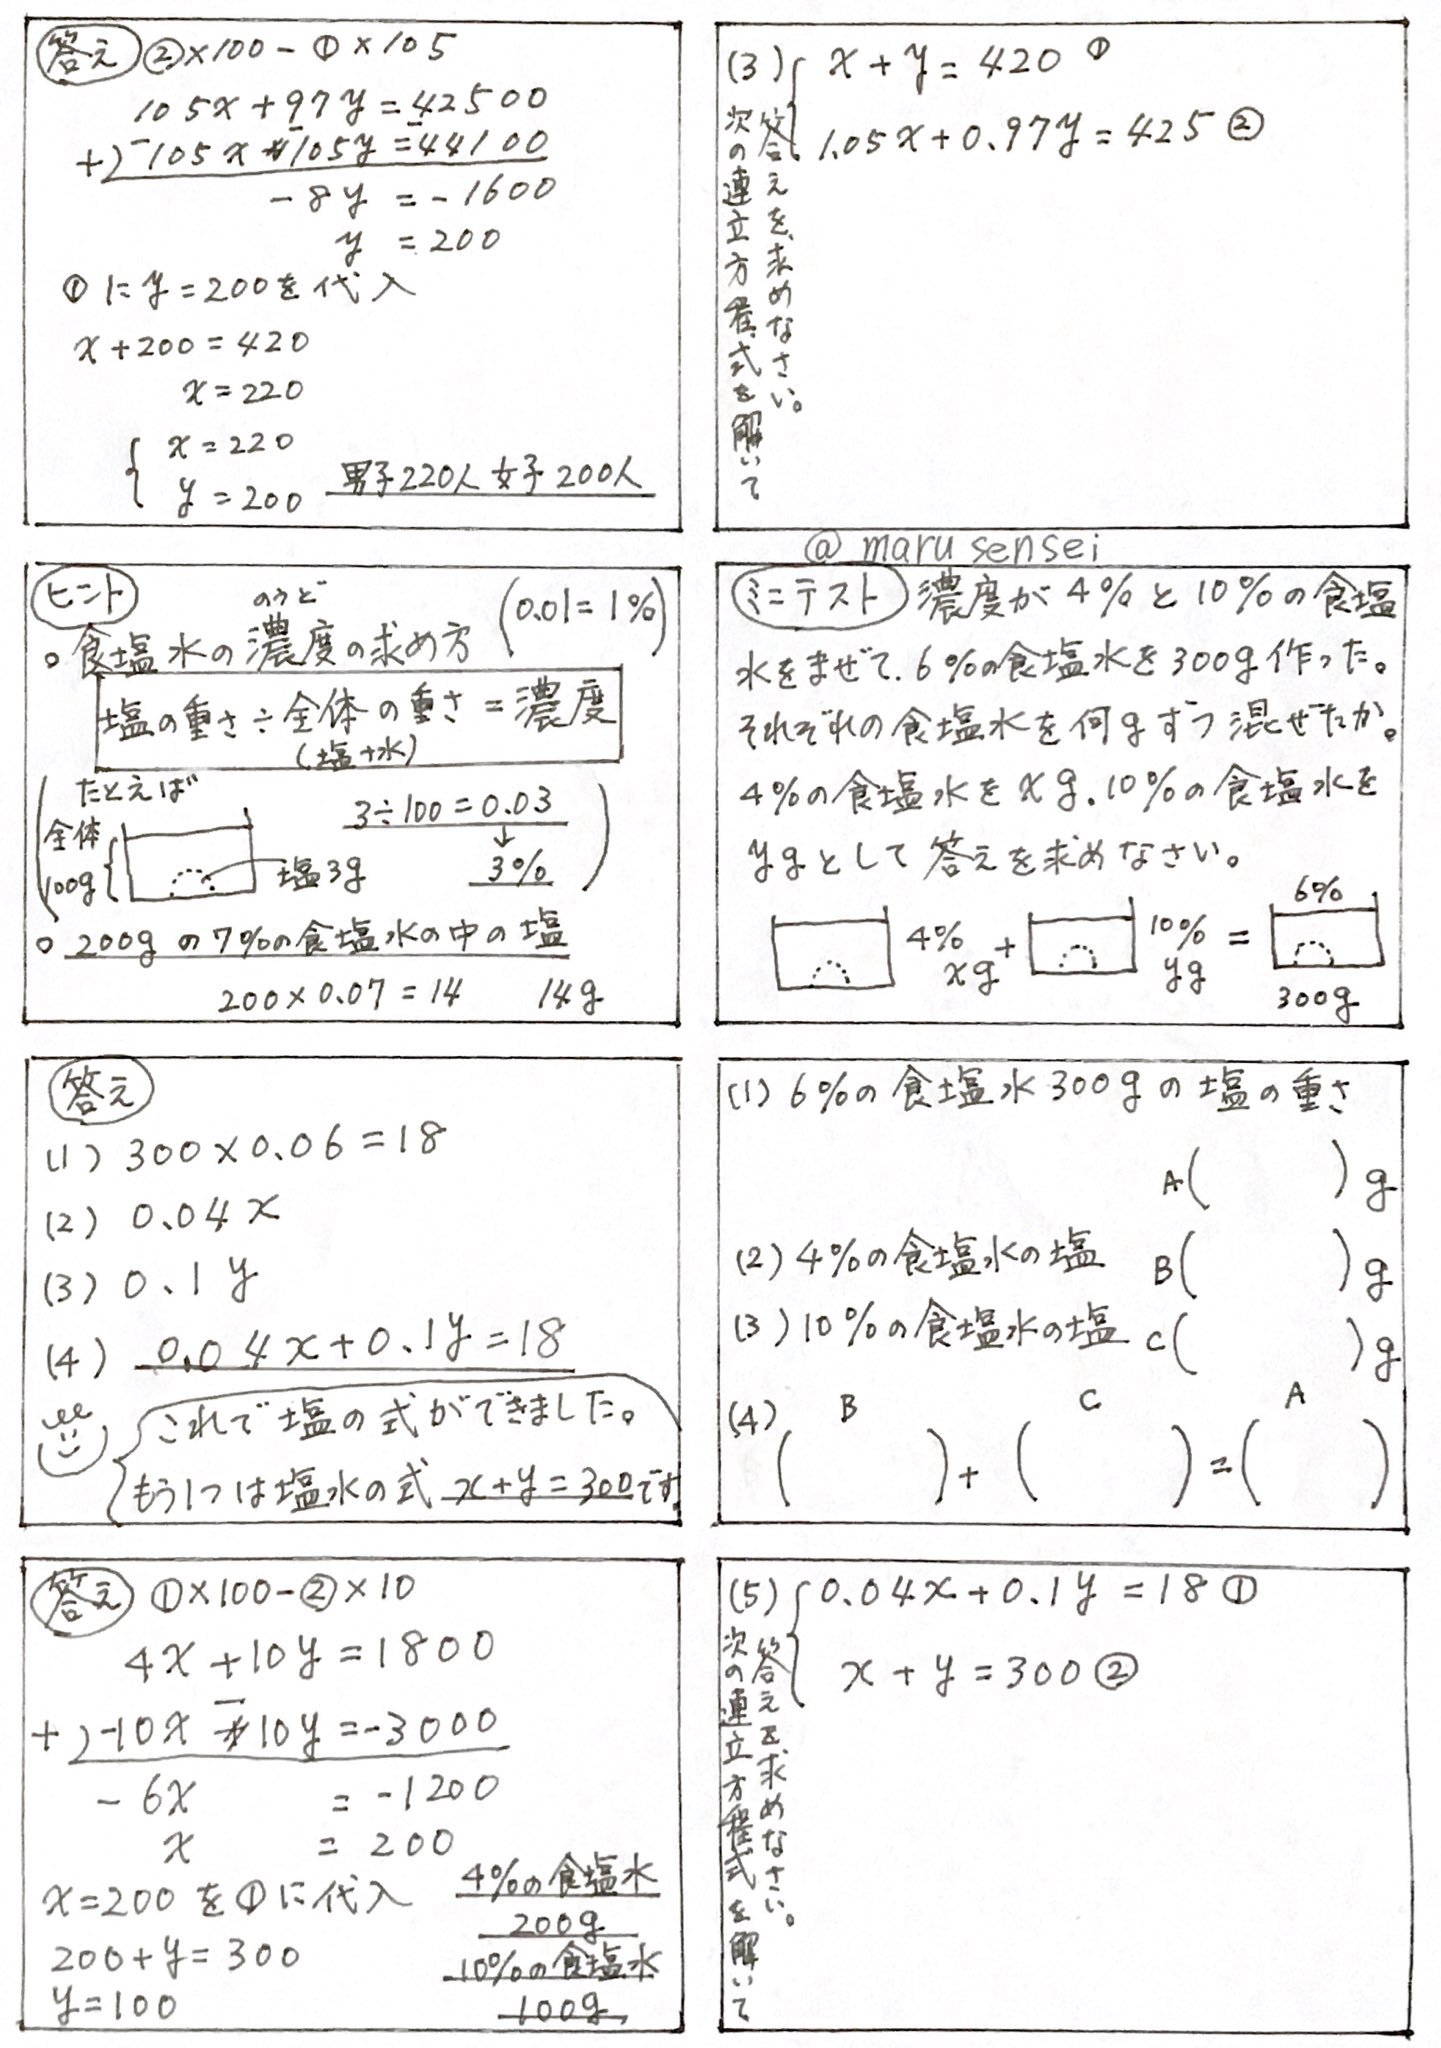 答え ②×100-①×105
105x+97y=42500
+)-105x-105y=-44100
-8y=-1600
y=200
①にy=200を代入
x+200=420
x=220
{ x=220
y=200 男子220人 女子200人
(3) { x+y=420 ①
1.05x+0.97y=425 ②
次の連立方程式を解いて
答えを求めなさい。
@marusensei
ヒント
のうど
○食塩水の濃度の求め方 (0.01=1%)
塩の重さ÷全体の重さ=濃度
(塩+水)
たとえば
全体
100g
塩3g
3÷100=0.03
↓
3%
○200gの7%の食塩水の中の塩
200×0.07=14 14g
ミニテスト 濃度が4%と10%の食塩
水をまぜて、6%の食塩水を300g作った。
それぞれの食塩水を何gずつ混ぜたか。
4%の食塩水をxg、10%の食塩水を
ygとして答えを求めなさい。
4% xg + 10% yg = 6% 300g
答え
(1) 300×0.06=18
(2) 0.04x
(3) 0.1y
(4) 0.04x+0.1y=18
これで塩の式ができました。
もう1つは塩水の式 x+y=300です
(1) 6%の食塩水300gの塩の重さ
A( )g
(2) 4%の食塩水の塩 B( )g
(3) 10%の食塩水の塩 C( )g
B C A
(4) ( )+( )=( )
答え ①×100-②×10
4x+10y=1800
+)-10x-10y=-3000
-6x =-1200
x =200
x=200を①に代入
200+y=300
y=100
4%の食塩水
200g
10%の食塩水
100g
(5) { 0.04x+0.1y=18 ①
x+y=300 ②
次の連立方程式を解いて
答えを求めなさい。